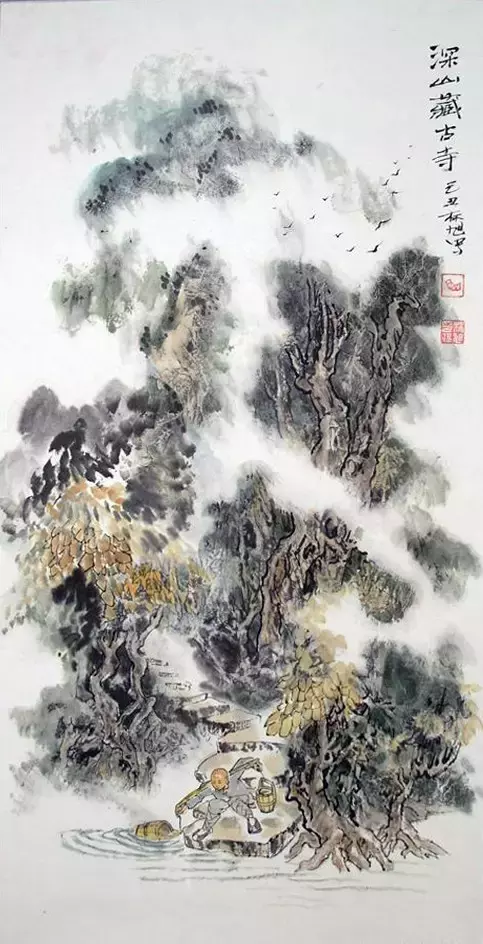 深山藏古寺
己丑林旭写